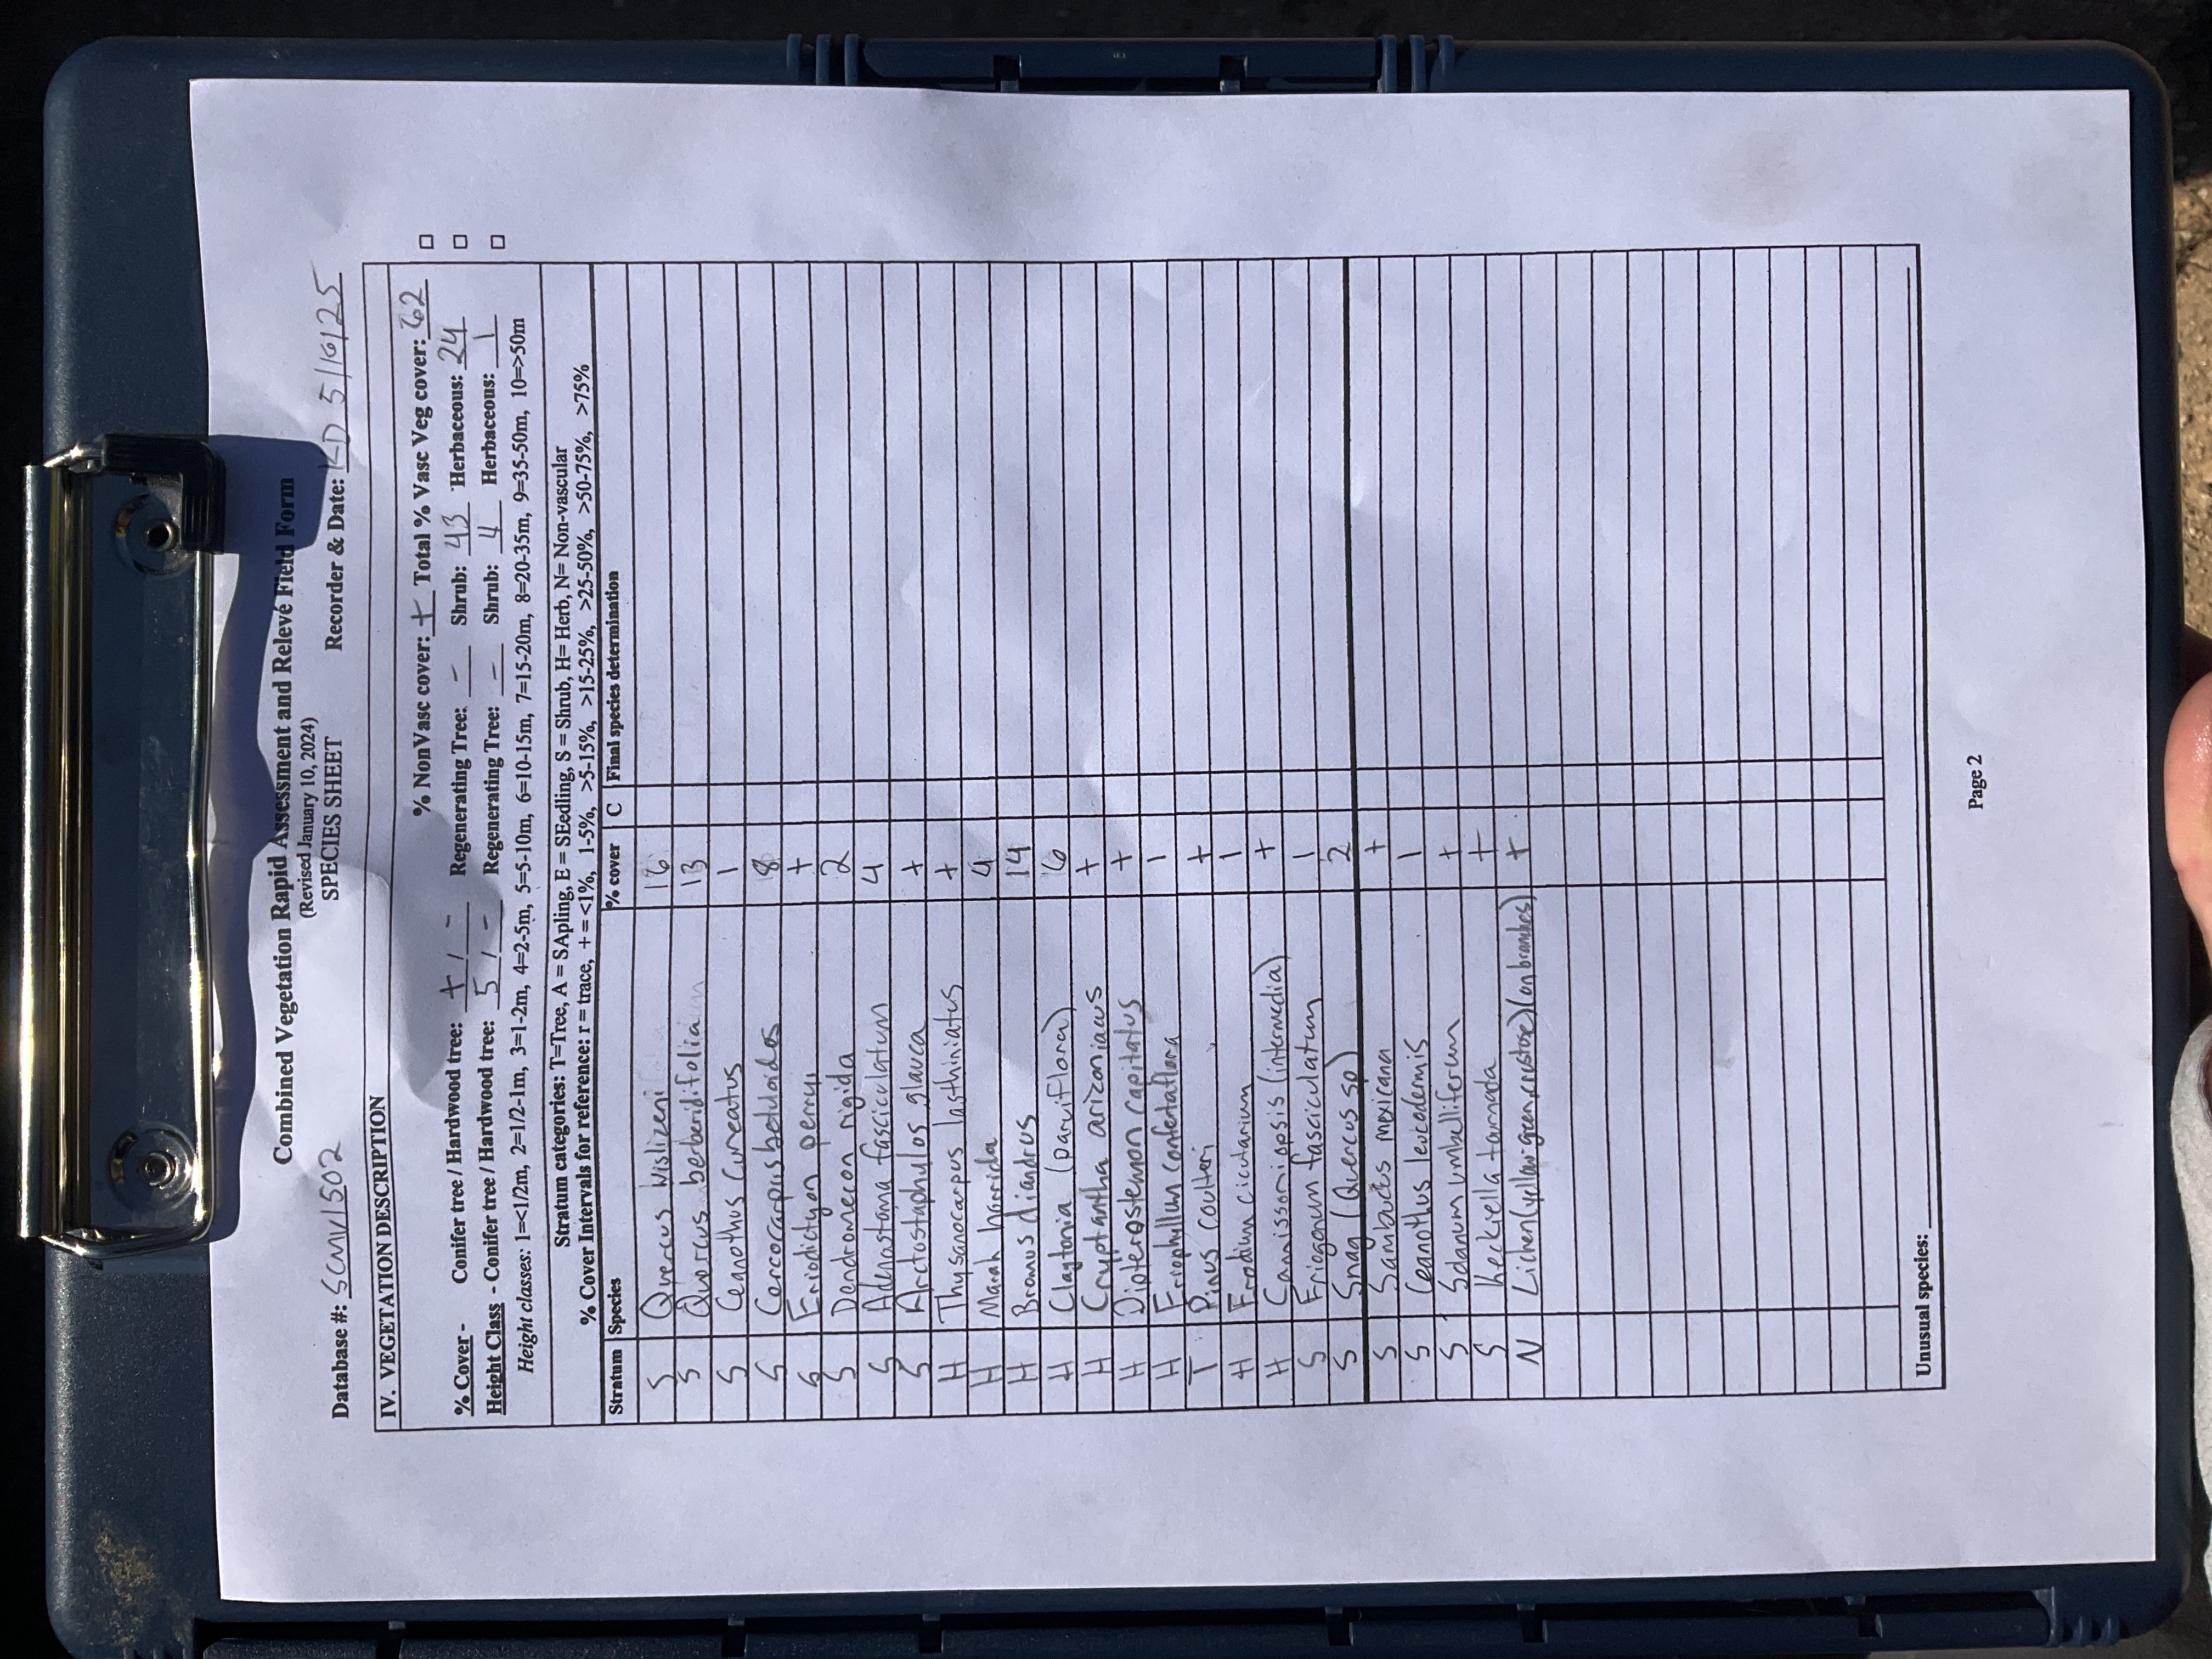 Combined Vegetation Rapid Assessment and Relevé Field Form
(Revised January 10, 2024)
SPECIES SHEET
Database #: SCMV1502 Recorder & Date: KD 5/16/25
IV. VEGETATION DESCRIPTION
% NonVasc cover: + Total % Vasc Veg cover: 62
% Cover - Conifer tree / Hardwood tree: + / - Regenerating Tree: - Shrub: 43 Herbaceous: 24
Height Class - Conifer tree / Hardwood tree: 5 / - Regenerating Tree: - Shrub: 4 Herbaceous: 1
Height classes: 1=<1/2m, 2=1/2-1m, 3=1-2m, 4=2-5m, 5=5-10m, 6=10-15m, 7=15-20m, 8=20-35m, 9=35-50m, 10=>50m
Stratum categories: T=Tree, A = SApling, E = SEedling, S = Shrub, H= Herb, N= Non-vascular
% Cover Intervals for reference: r = trace, + = <1%, 1-5%, >5-15%, >15-25%, >25-50%, >50-75%, >75%
Stratum Species % cover C Final species determination
S Quercus wislizeni 16
S Quercus berberidifolia 13
S Ceanothus cuneatus 1
S Cercocarpus betuloides 8
S Eriodictyon perryi +
S Dendromecon rigida 2
S Adenostoma fasciculatum 4
S Arctostaphylos glauca +
H Thysanocarpus lasthiniatus +
H Marah horrida 4
H Bromus diandrus 14
H Claytonia (parviflora) 6
H Cryptantha arizoniacus +
H Dipterostemon capitatus +
H Eriophyllum confertaflora 1
T Pinus coulteri +
H Erodium cicutarium 1
H Camissoniopsis (intermedia) +
S Eriogonum fasciculatum 1
S Snag (Quercus sp) 2
S Sambucus mexicana +
S Ceanothus leucodermis 1
S Solanum umbelliferum +
S Keckiella ternada +
N Lichen (yellow green, crustose) (on branches) +
Unusual species:
Page 2